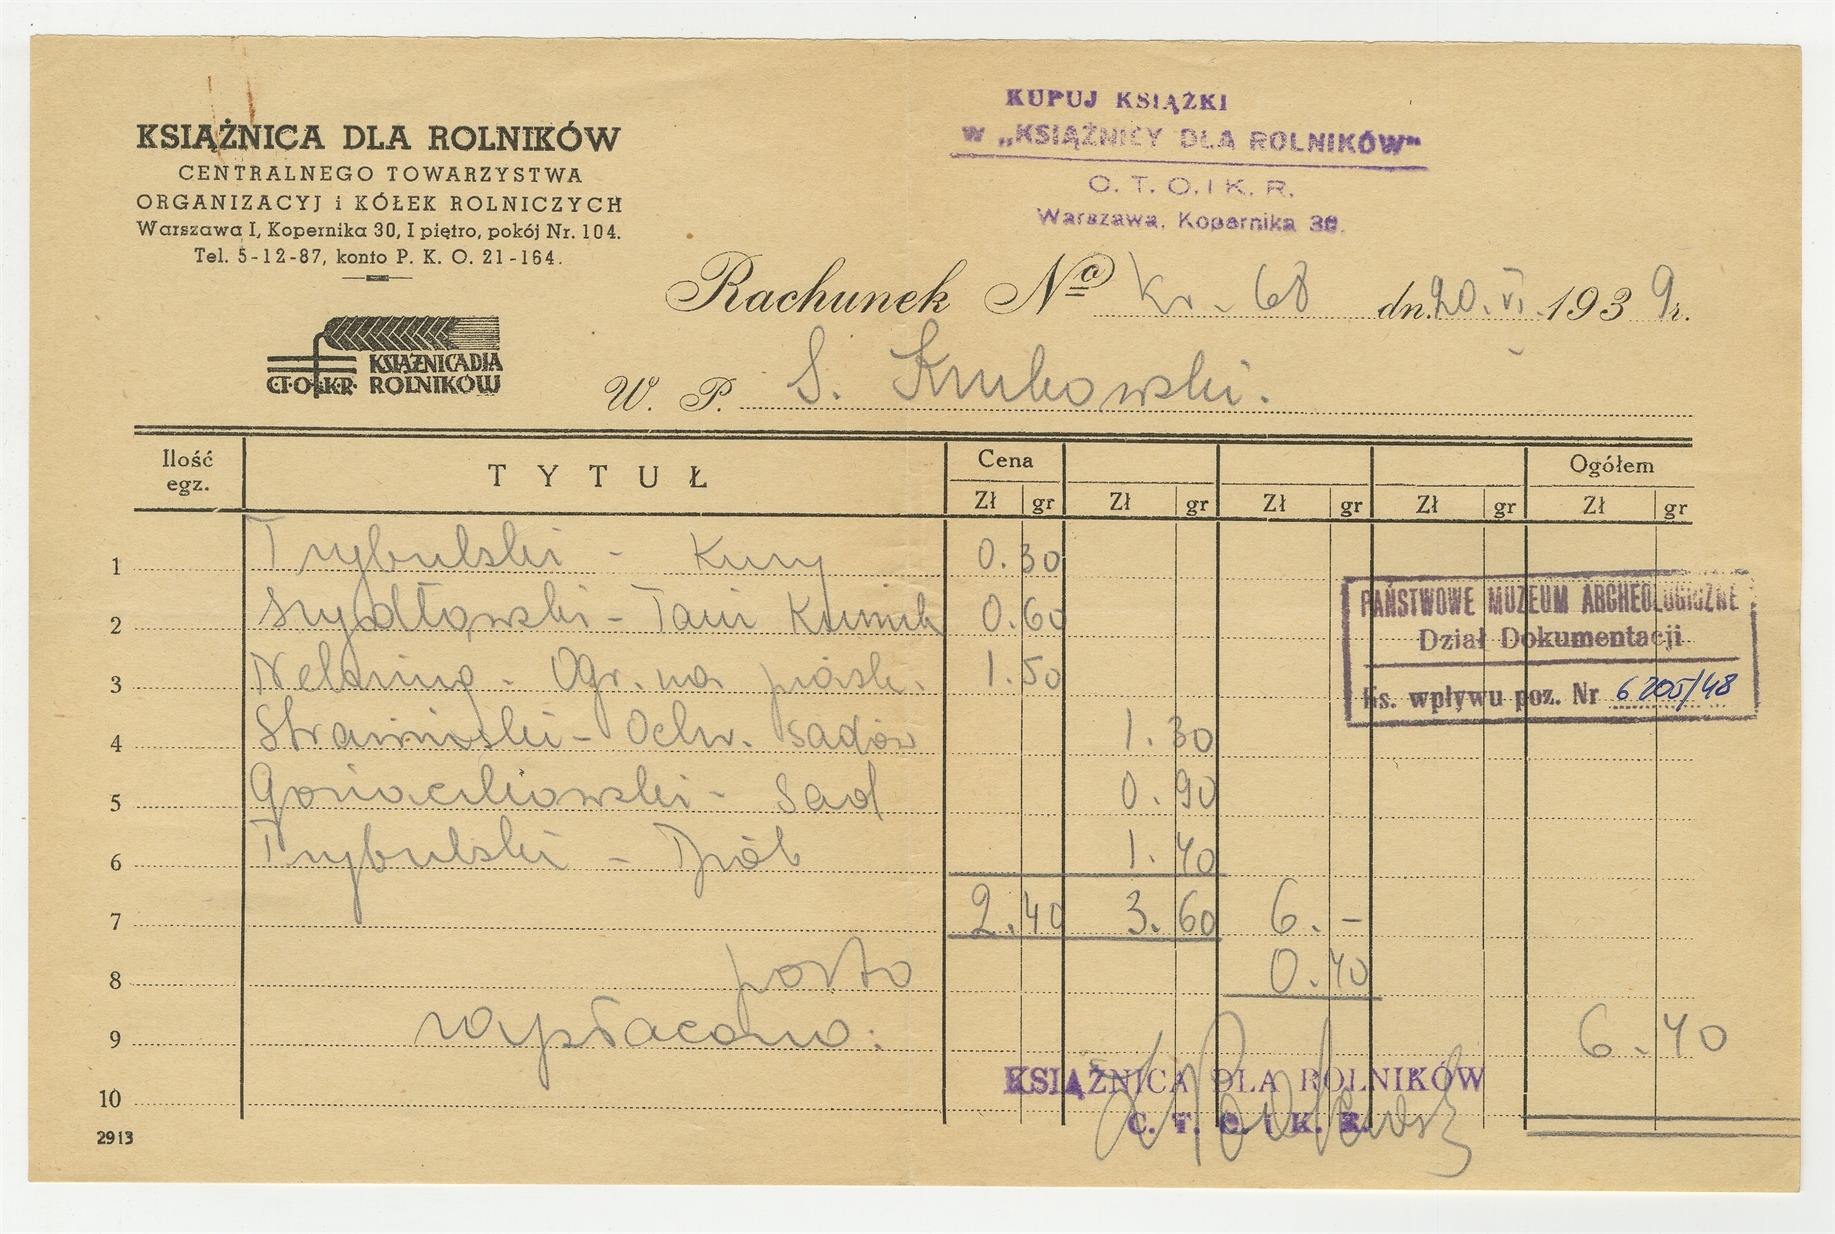 KSIĄŻNICA DLA ROLNIKÓW
CENTRALNEGO TOWARZYSTWA
ORGANIZACYJ i KÓŁEK ROLNICZYCH
Warszawa I, Kopernika 30, I piętro, pokój Nr. 104.
Tel. 5-12-87, konto P. K. O. 21-164.
KSIĄŻNICA DLA
C.T.O.i K.R. ROLNIKÓW
KUPUJ KSIĄŻKI
w „KSIĄŻNICY DLA ROLNIKÓW"
C. T. O. I K. R.
Warszawa, Kopernika 30.
Rachunek No Kr. 68 dn. 20. VI. 1939 r.
W. P. S. Krukowski.
Ilość egz. TYTUŁ Cena Ogółem
Zł gr Zł gr Zł gr Zł gr Zł gr
1 Trybulski - Kury 0.30
2 Szydłowski - Tani Kurnik 0.60
3 - Ogr. na piask. 1.50
4 - Ochr. sadów 1.30
5 - Sad 0.90
6 Trybulski - Drób 1.40
7 2.40 3.60 6.-
8 porto 0.40
9 wypłacono: 6.40
10
PAŃSTWOWE MUZEUM ARCHEOLOGICZNE
Dział Dokumentacji
Ks. wpływu poz. Nr 6205/48
KSIĄŻNICA DLA ROLNIKÓW
C. T. O. i K. R.
2913